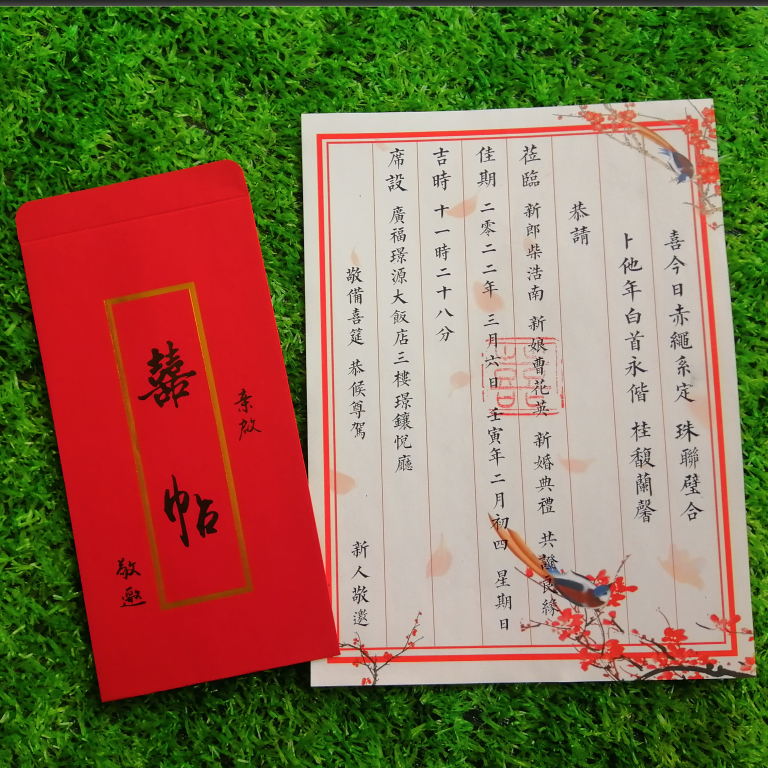 囍
帖
亲啟
敬邀
喜今日赤繩系定 珠聯璧合
卜他年白首永偕 桂馥蘭馨
恭請
莅臨 新郎柴浩南 新娘曹花英 新婚典禮 共證良緣
佳期 二零二二年 三月六日 壬寅年二月初四 星期日
吉時 十一時二十八分
席設 廣福璟源大飯店三樓璟鑲悅廳
敬備喜筵 恭候尊駕
新人敬邀
囍